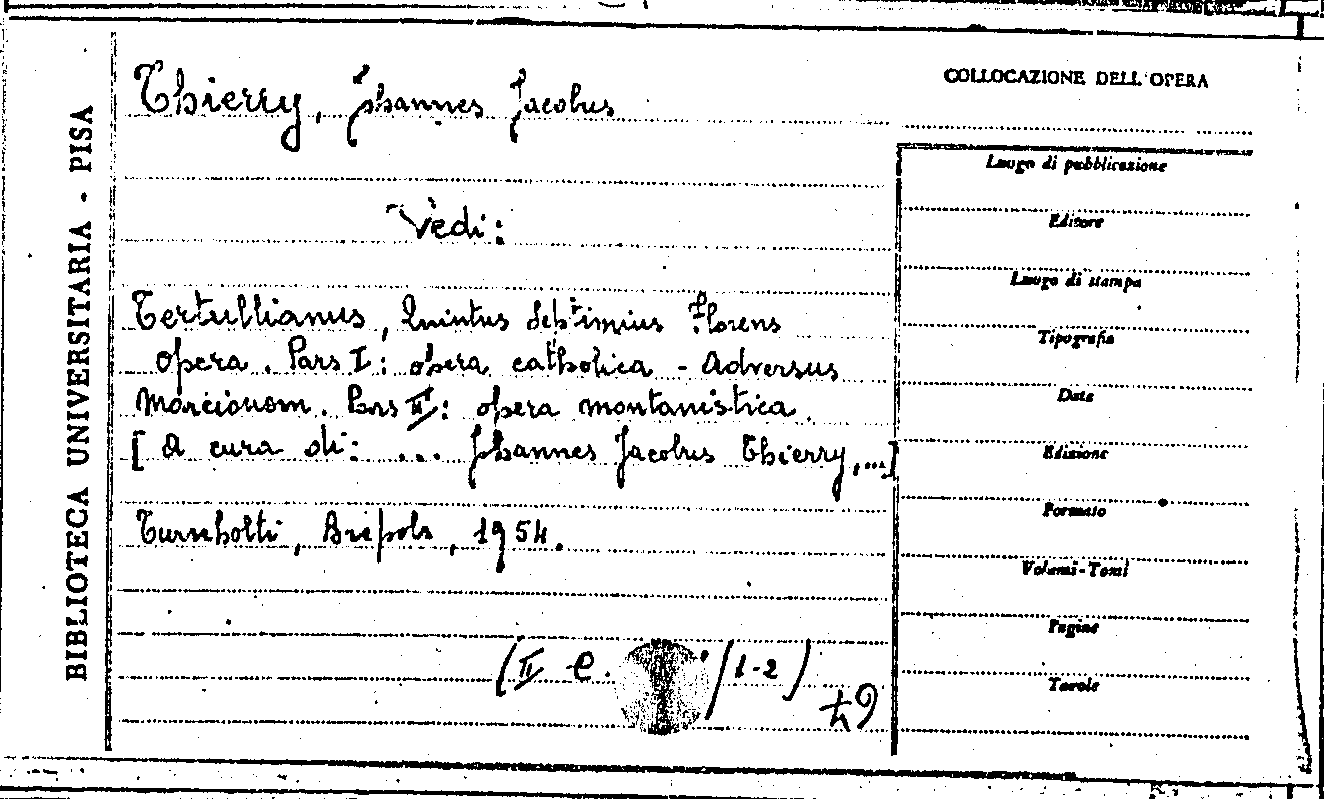 BIBLIOTECA UNIVERSITARIA - PISA
Thierry, Johannes Jacobus
Vedi:
Tertullianus, Quintus Septimius Florens
Opera. Pars I: opera catholica - Adversus
Marcionem. Pars II: opera montanistica.
[A cura di: ... Johannes Jacobus Thierry,...]
Turnholti, Brepols, 1954.
(II e. /1-2)
COLLOCAZIONE DELL'OPERA
Luogo di pubblicazione
Editore
Luogo di stampa
Tipografia
Data
Edizione
Formato
Volumi-Tomi
Pagine
Tavole